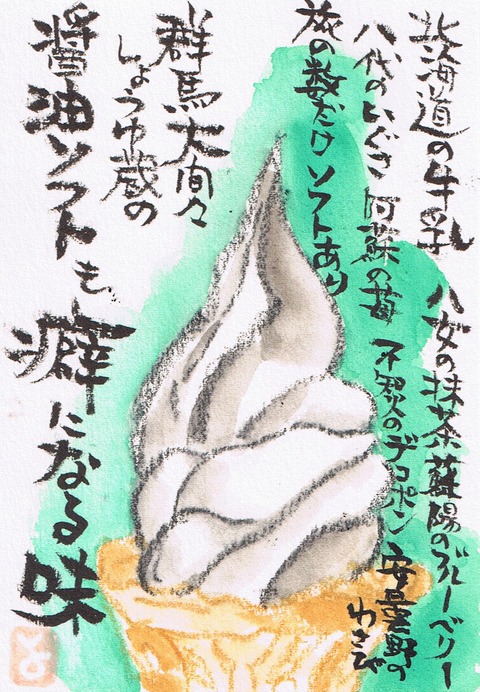 北海道の牛乳
八女の抹茶 蘇陽のブルーベリー
八代のいぐさ 阿蘇の苺 不知火のデコポン 安曇野の
わさび
旅の数だけソフトあり
群馬大間々
しょうゆ蔵の
醤油ソフトも
癖になる味